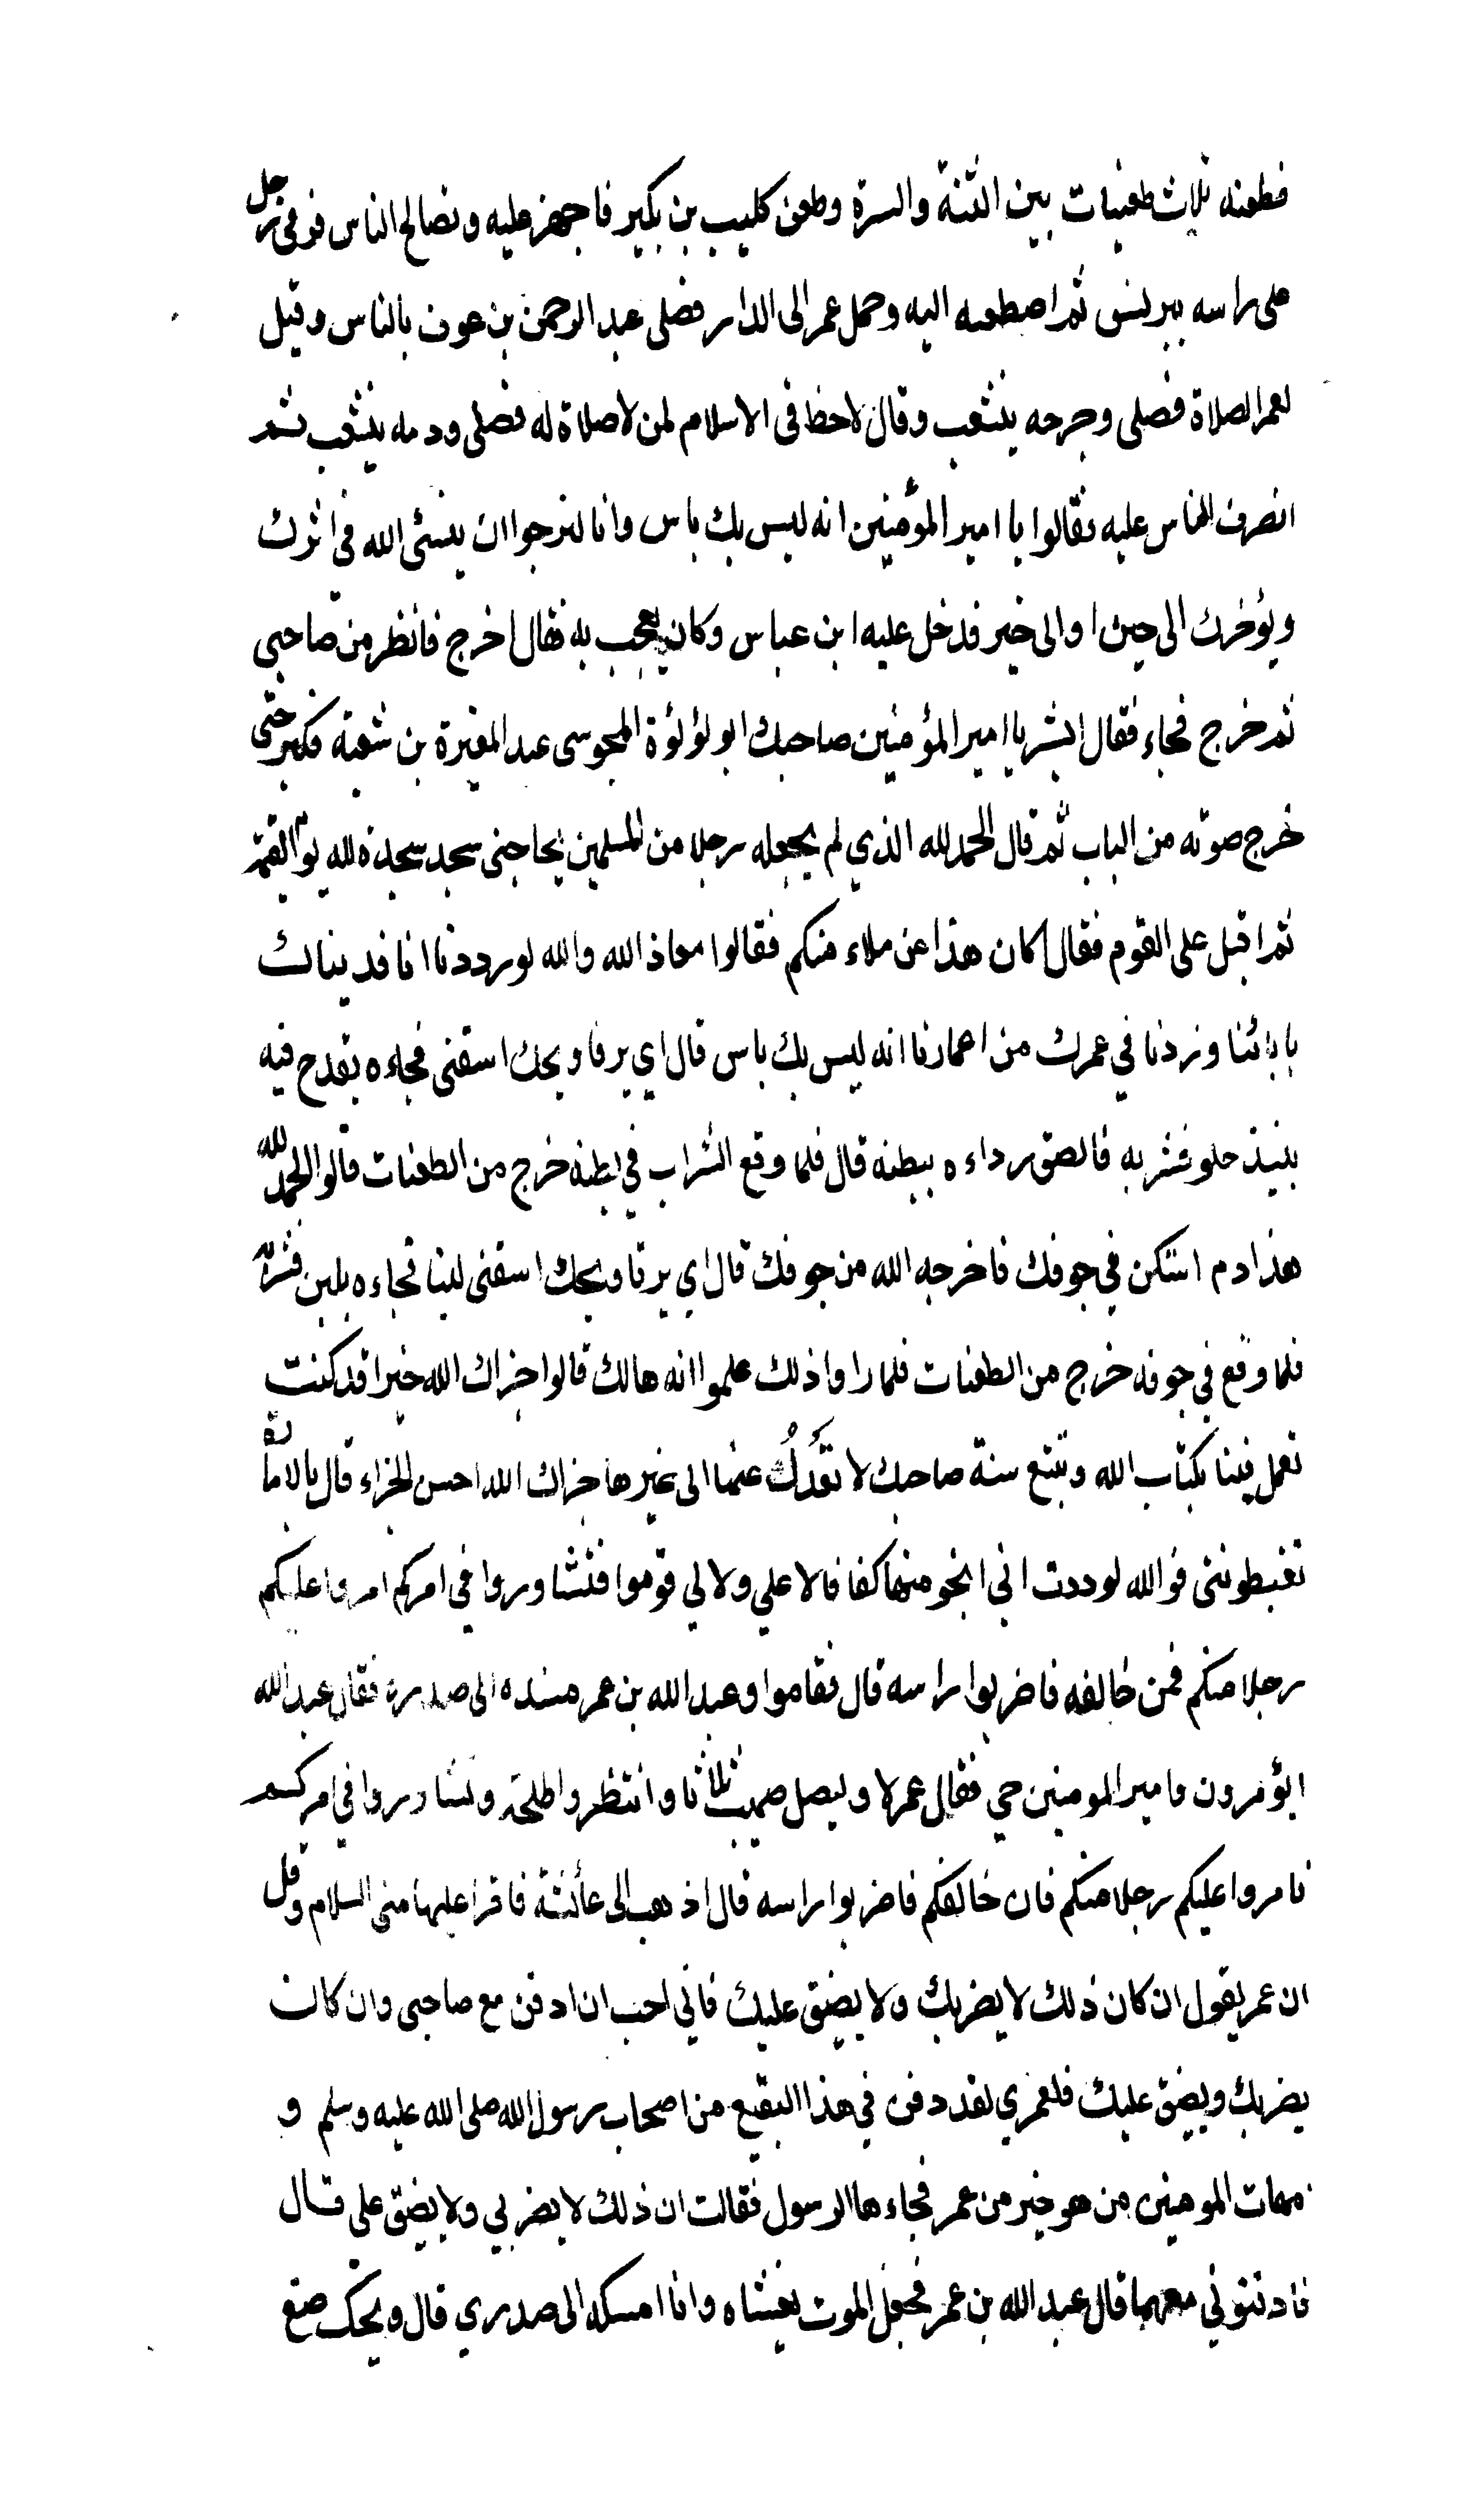 فطعنه ثلاث طعنات بين الثنة والسرة وطعن كليب بن بكير فاجهز عليه وتصالح الناس فرمى رجل
على راسه ببرنس ثم اضطبعه اليه وحمل عمر الى الدار فصلى عبد الرحمن بن عوف بالناس وقيل
لعمر الصلاة فصلى وجرحه يثعب وقال لاحظ فى الاسلام لمن لا صلاة له فصلى ودمه يثعب ثم
انصرف الناس عليه فقالوا يا امير المؤمنين انه ليس بك باس وانا لنرجوا ان ينسئ الله في اثرك
ويؤخرك الى حين او الى خير فدخل عليه ابن عباس وكان يعجب به فقال اخرج فانظر من صاحبي
ثم خرج فجاء فقال ابشر يا امير المؤمنين صاحبك ابو لؤلؤة المجوسى عبد المغيرة بن شعبة فكبر حتى
خرج صوته من الباب ثم قال الحمد لله الذي لم يجعله رجلا من المسلمين يحاجنى سجد سجدة لله يوم القيمة
ثم اقبل على القوم فقال اكان هذا عن ملاء منكم فقالوا معاذ الله والله لوددنا انا فديناك
بابائنا وزدنا في عمرك من اعمارنا انه ليس بك باس قال اي يرفا ويحك اسقنى فجاءه بقدح فيه
نبيذ حلو فشربه فالصق رداءه ببطنه قال فلما وقع الشراب في بطنه خرج من الطعنات قالوا الحمد لله
هذا دم استكن في جوفك فاخرجه الله من جوفك قال اي يرفا ويحك اسقنى لبنا فجاءه بلبن فشربه
فلما وقع في جوفه خرج من الطعنات فلما راوا ذلك علموا انه هالك قالوا جزاك الله خيرا قد كنت
تعمل فينا بكتاب الله وتتبع سنة صاحبك لا تعدل عنها الى غيرها جزاك الله احسن الجزاء قال بالامارة
تغبطوننى فوالله لوددت اني انجو منها كفافا لا علي ولا لي قوموا فتشاوروا في امركم امروا عليكم
رجلا منكم فمن خالفه فاضربوا راسه قال فقاموا وعبد الله بن عمر مسنده الى صدره فقال عبد الله
ايؤمرون وامير المومنين حي فقال عمر لا وليصل صهيب ثلاثا وانتظروا طلحة وتشاوروا في امركم
فامروا عليكم رجلا منكم فان خالفكم فاضربوا راسه قال اذهب الى عائشة فاقرا عليها منى السلام وقل
ان عمر يقول ان كان ذلك لا يضر بك ولا يضيق عليك فاني احب ان ادفن مع صاحبى وان كان
يضر بك ويضيق عليك فلعمري لقد دفن في هذا البقيع من اصحاب رسول الله صلى الله عليه وسلم و
امهات المومنين من هو خير من عمر فجاءها الرسول فقالت ان ذلك لا يضر بي ولا يضيق على قال
فادفنوني معهما قال عبد الله بن عمر فجعل الموت يغشاه وانا امسكه الى صدري قال ويحك ضع